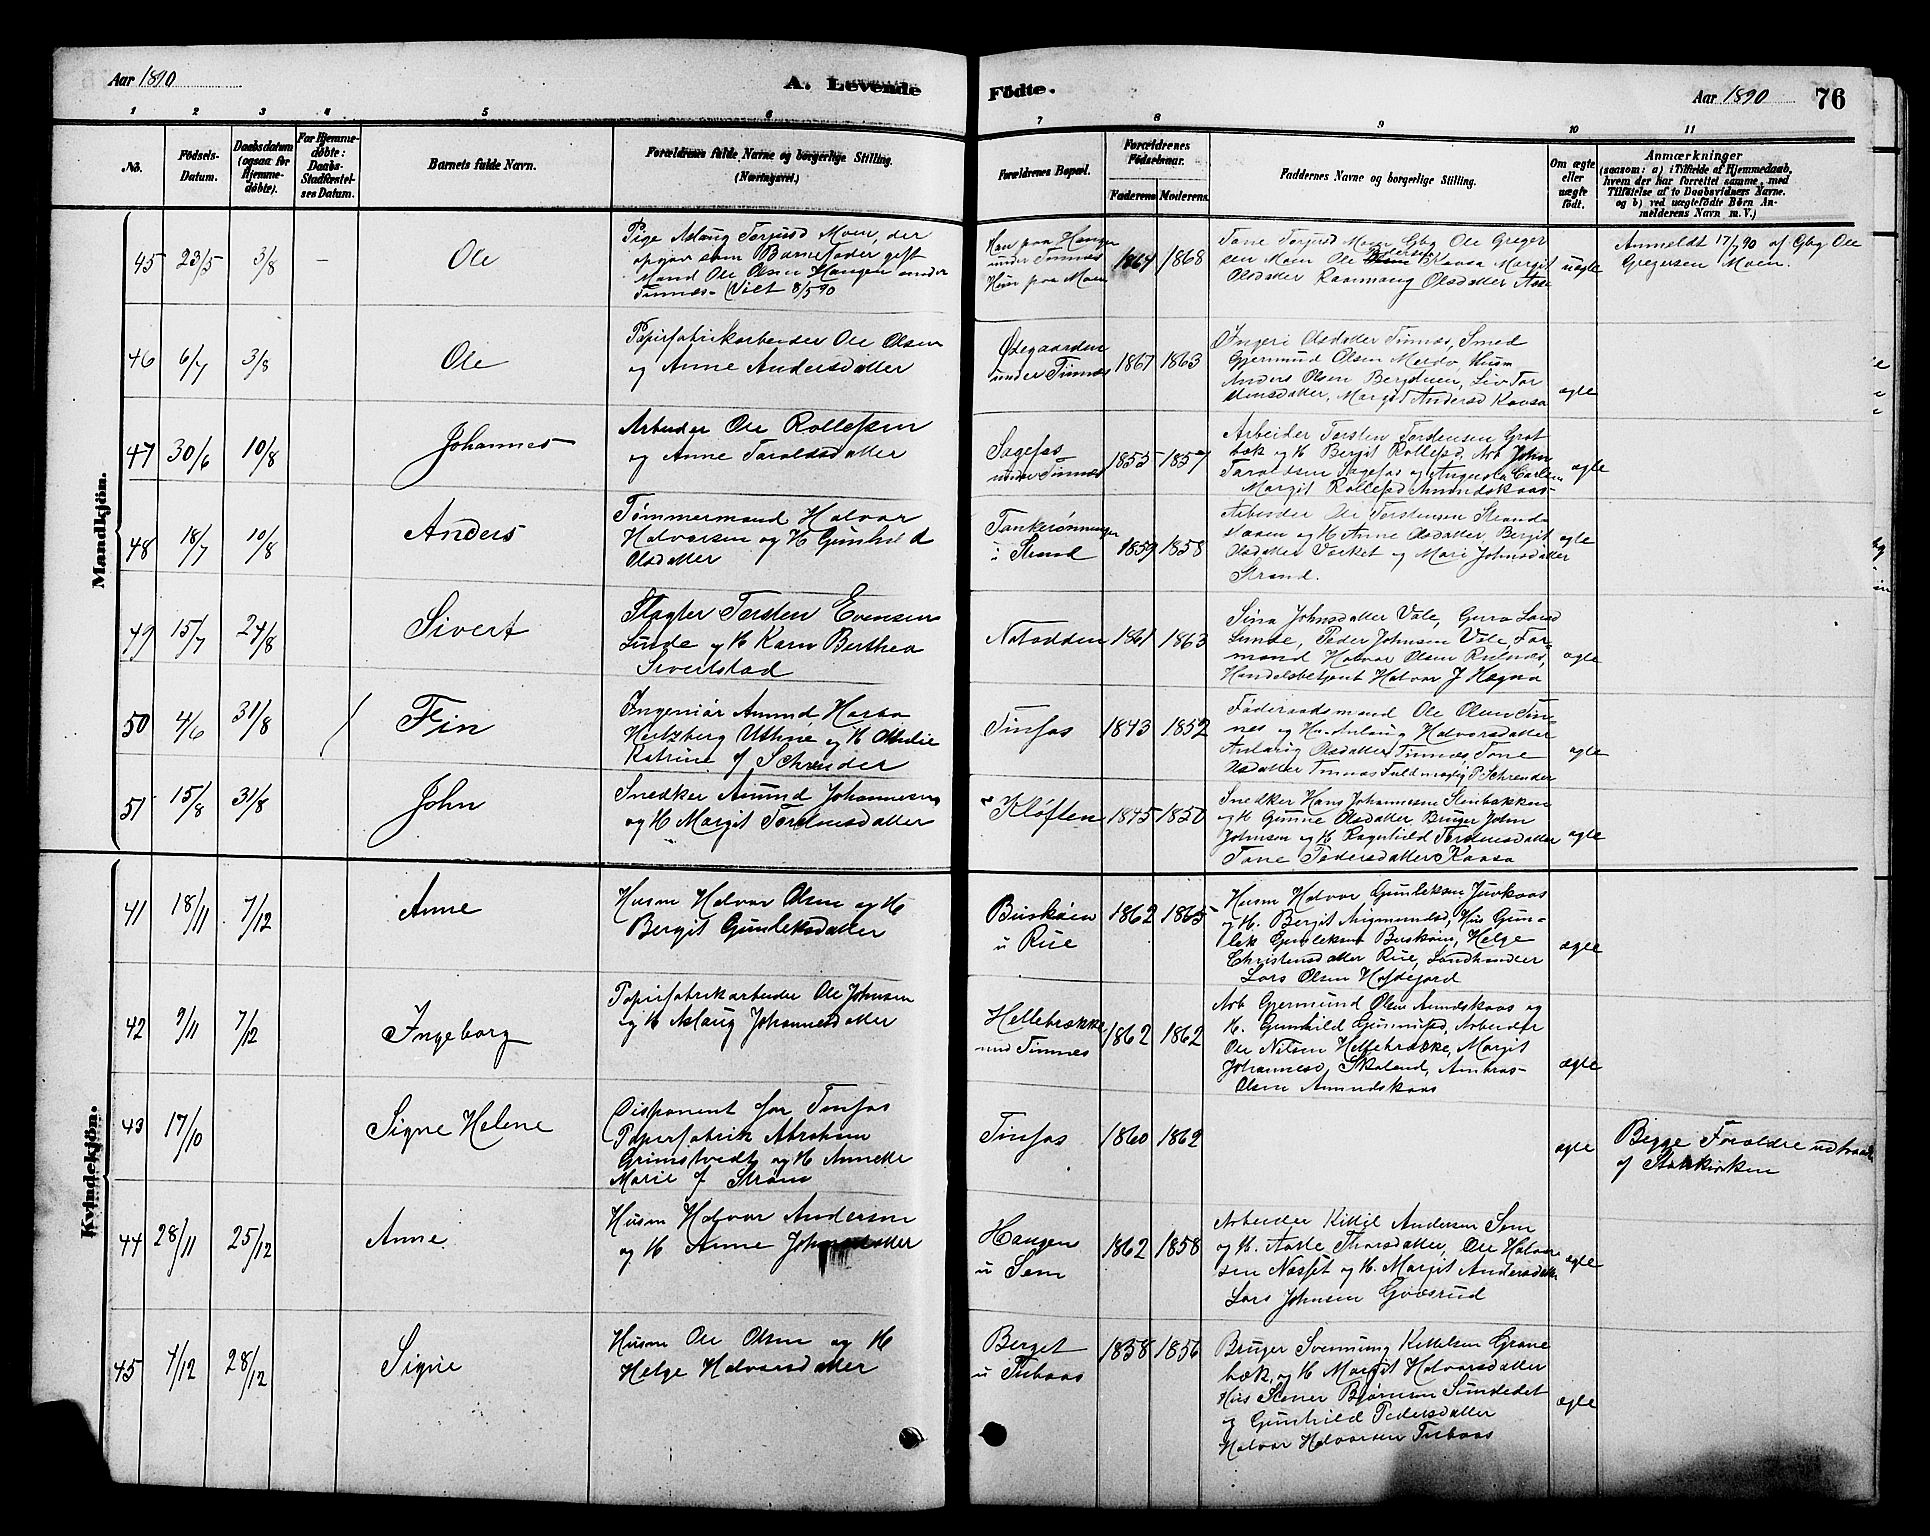 Aar 1890
A. Levende
Fødte.
Aar 1890
76
1 2 3 4 5 6 7 8 9 10 11
No.
Fødsels-
Datum.
Daabsdatum
(ogsaa for
Hjemme-
døbte).
For Hjemme-
døbte:
Daabs-
Stadfæstel-
ses Datum.
Barnets fulde Navn.
Forældrenes fulde Navne og borgerlige Stilling.
(Næringsvei.)
Forældrenes Bopæl.
Forældrenes
Fødselsaar.
Faderens Moderens
Faddernes Navne og borgerlige Stilling.
Om ægte
eller
uægte
født.
Anmærkninger
(saasom: a) i Tilfælde af Hjemmedaab,
hvem der har forrettet samme, med
Tilføielse af to Daabsvidners Navne.
og b) ved uægtefødte Børn An-
melderens Navn m. V.)
Mandkjön.
45 23/5 3/8 - Ole
Pige Aslaug Torjusd Moen, der
opgav som Barnefader gift
Mand Ole Olsen Haugen under
Tinnæs (Viet 8/5 90
Han paa Haugen
under Tinnæs
Hun paa Moen
1864 1868
Tone Torjusd Moen Gbg Ole Greger
sen Moen Ole Kaasa Margit
Olsdatter Olsdatter
uægte
Anmeldt 17/7 90 af Gbg Ole
Gregersen Moen.
46 6/7 3/8 Ole
Papirfabrikarbeider Ole Olsen
og Anne Andersdatter
Ødegaarden
under Tinnæs
1867 1863
Ingeri Olsdatter Tinnæs, Smed
Gjermund Olsen Husm
Anders Olsen Bergstuen, Liv Tor
stensdatter, Margit Andersd Kaasa
ægte
47 30/6 10/8 Johannes
Arbeider Ole Rollefsen
og Anne Taraldsdatter
Sagefos
under Tinnæs
1855 1857
Arbeider Torsten Torstensen Grøt
bæk og H Bergit Rollefsd, Arb John
Taraldsen Sagefos og Augusta Carlsen
Margit Rollefsd Amundskaas
ægte
48 18/7 10/8 Anders
Tømmermand Halvor
Halvorsen og H Gunhild
Olsdatter
Tankerønningen
i Strand
1859 1858
Arbeider Ole Torstensen Strand-
moen og H Anne Olsdatter, Bergit
Olsdatter Varket og Mari Johnsdatter
Strand.
ægte
49 15/7 24/8 Sivert
Slagter Torsten Evensen
Sunde og H Karn Berthea
Sivertstad
Notodden
1861 1863
Sina Johnsdatter Vale, Guro Larsd
Sunde, Peder Johnsen Vale, For-
mand Halvor Olsen
Handelsbetjent Halvor J Hægna
ægte
50 4/6 31/8 / Fin
Ingeniør Amund Harbo
Hertzberg Uthne og H
Katrine f Schrøder
Tinfos
1843 1852
Føderaadsmand Ole Olsen Tin-
nes og Aslaug Halvorsdatter
Anlaug Olsdatter Tinnæs, Tone
Olsdatter Tinnæs Fuldmægtig P Schrøder
ægte
51 15/8 31/8 John
Snedker Amund Johannesen
og H Margit Torstensdatter
Kløften
1845 1850
Snedker Hans Johannesen Stenbakken
og H Gunne Olsdatter Bruger John
Johnsen og H Ragnhild Torstensdatter
Tone Pedersdatter Kaasa
ægte
Kvindekjön.
41 18/11 7/12 Anne
Husm Halvor Olsen og H
Bergit Gunleksdatter
Buskåsen
u Rue
1862 1865
Husm Halvor Gunleksen Juvkaas
og H. Bergit Augmundsd, Hus Gun-
lek Gunleksen Helge
Christensdatter Rue, Landhandler
Lars Olsen
ægte
42 9/11 7/12 Ingeborg
Papirfabrikarbeider Ole Johnsen
og H Aslaug Johannesdatter
Hellebrække
und Tinnes
1862 1862
Arb Gjermund Olsen Amundskaas og
H. Gunhild Arbeider
Ole Nilsen Hellebrække, Margit
Johannesd, Skaland, Ambros-
Olsen Amundskaas
ægte
43 17/10 Signe Helene
Disponent for Tinfos
Papirfabrik Abraham
Grimstvedt og H Annette
Marie f Strøm
Tinfos
1860 1862
ægte
Begge Forældre udtraadt
af Statskirken
44 28/11 25/12 Anne
Husm Halvor Andersen
og H Anne Johnsdatter
Haugen
u Sem
1862 1858
Arbeider Kittil Andersen Sem
og H. Aasle Thorsdatter, Ole Halvor
sen Næsset og H. Margit Andersdatter
Lars Johnsen Goosrud
ægte
45 7/12 28/12 Signe
Husm Ole Olsen og H
Helge Halvorsdatter
Berget
u Tuboas
1858 1856
Bruger Svennung Kittelsen Grane
bæk, og H Margit Halvorsdatter
Hus Stener Bjørnsen Sundedet
og Gunhild Pedersdatter
Halvor Halvorsen Tuboas
ægte